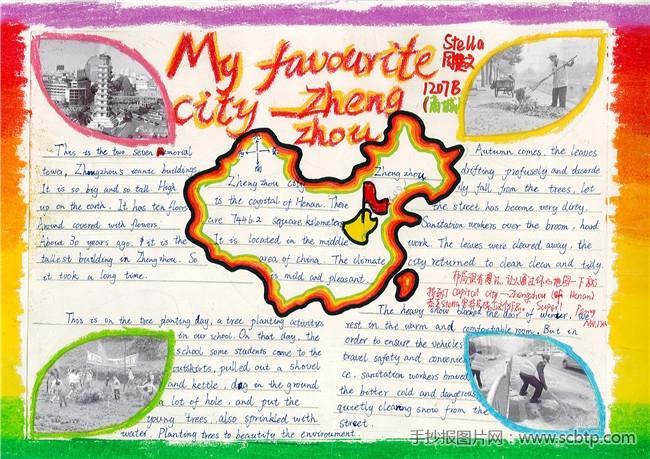 My favourite
city - Zheng
zhou
Stella
1207B
This is the two Seven Memorial
tower, Zhengzhou's scenic buildings
It is so big and so tall. High
up on the earth. It has ten floors
Around covered with flowers.
About 30 years ago, it is the
tallest building in Zhengzhou. So
it took a long time.
Zhengzhou city
is the capital of Henan. There
are 7446.2 square kilometers
It is located in the middle
area of China. The climate
is mild and pleasant.
Zheng zhou
Autumn comes, the leaves
drifting profusely and disorde
ly fall from the trees, let
the street has become very dirty.
Sanitation workers over the broom, hard
work. The leaves were cleared away, the
city returned to clean clean and tidy.
capital city - Zhengzhou (of Henan)
Super!
This is on the tree planting day, a tree planting activities
in our school. On that day, the
school some students come to the
outskirts, pulled out a shovel
and kettle, dig in the ground
a lot of hole, and put the
young trees, also sprinkled with
water. Planting trees to beautify the environment.
The heavy snow blocked the door of winter. We
rest in the warm and comfortable room. But in
order to ensure the vehicles
travel safety and convenien
ce, sanitation workers braved
the bitter cold and dangerous
quietly clearing snow from the
street.
手抄报图片网:www.scbtp.com